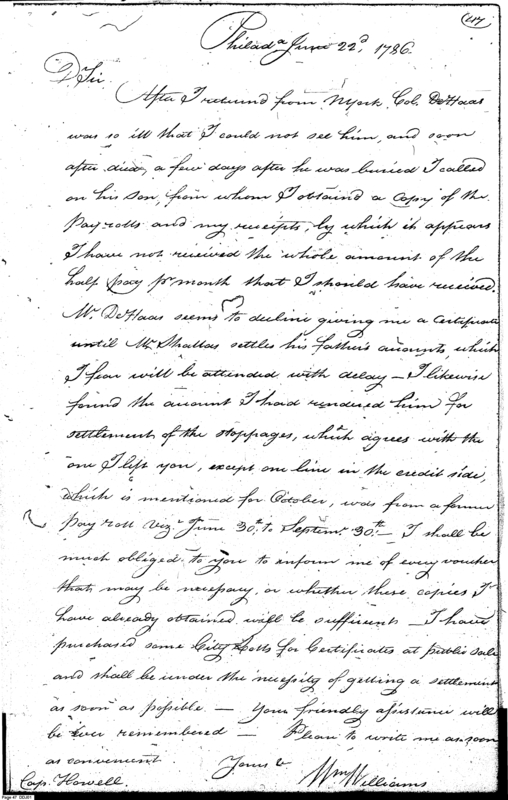 217
Philad.a June 22d, 1786.
D Sir
After I returnd from NYork, Col. DeHaas
was so ill that I could not see him, and soon
after died, a few days after he was buried I called
on his son, from whom I obtaind a Copy of the
Pay rolls and my receipts, by which it appears
I have not received the whole amount of the
half pay pr month that I should have received.
Mr. DeHaas seems to decline giving me a Certificate
until Mr settles his father's accounts, which
I fear will be attended with delay – I likewise
found the account I had rendered him for
settlement of the stoppages, which agrees with the
one I left you, except one line in the credit side,
which is mentioned for October, was from a former
Pay roll Vizt June 30th. to Septemr. 30th. – I shall be
much obliged to you to inform me of every voucher
that may be necessary, or whether these copies I
have already obtained will be sufficient – I have
purchased some City Lotts for Certificates at public sale
and shall be under the necessity of getting a settlement
as soon as possible. – Your friendly assistance will
be ever remembered – Please to write me as soon
as convenient. Yours &
Wm Williams
Cap. Howell.